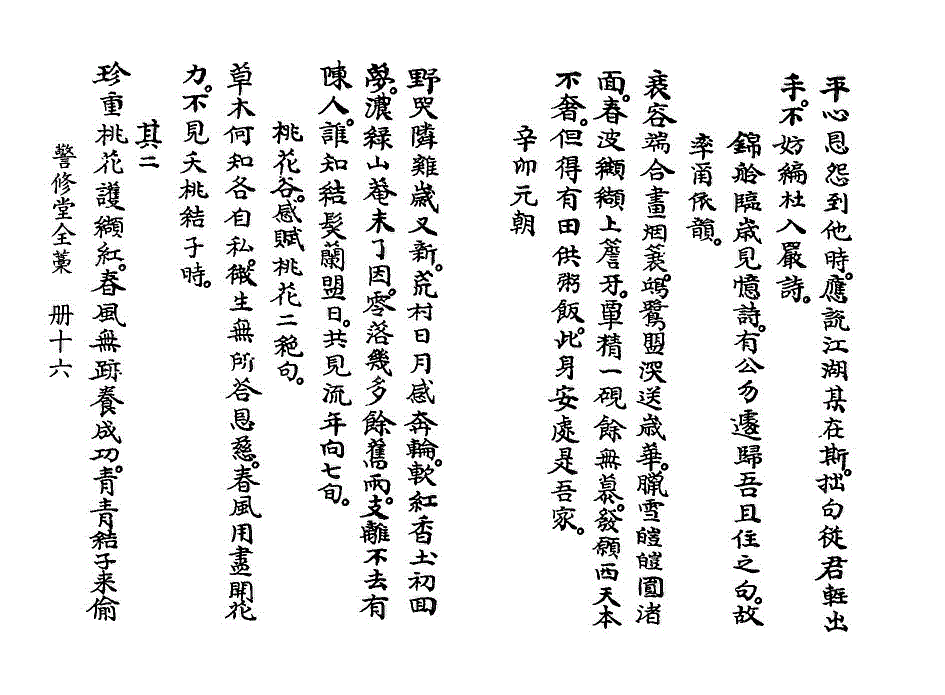 平心恩怨到他時。應説江湖某在斯。拙句從君輕出
手。不妨編杜入嚴詩。
錦舲臨歲見憶詩。有公勿遽歸吾且住之句。故
率甭依韻。
衰容端合畫烟蓑。鴻鷺盟深送歲華。臘雪皚皚園渚
面。春波纈纈上簷牙。單精一硯餘無慕。發願西天本
不奢。但得有田供粥飯。此身安處是吾家。
辛卯元朝
野哭隣雞歲又新。荒村日月感奔輪。軟紅香土初回
夢。濃綠山菴未了因。零落幾多餘舊雨。支離不去有
陳人。誰知結髮蘭盟日。共見流年向七旬。
桃花谷。感賦桃花二絕句。
草木何知各自私。微生無所答恩慈。春風用盡開花
力。不見夭桃結子時。
其二
珍重桃花護纈紅。春風無跡養成功。青青結子来偷
警修堂全藁　册十六